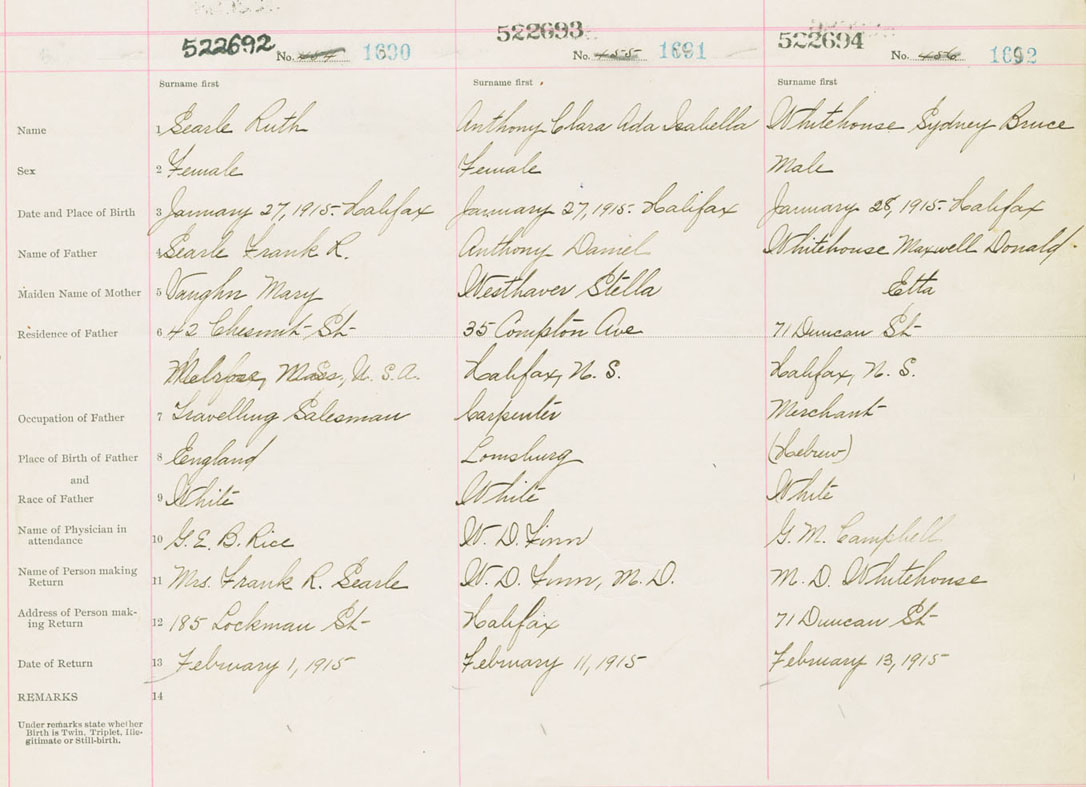 522692 522693 522694
No. 1690 No. 155 1691 No. 156 1692
Surname first Surname first Surname first
Name 1 Searle Ruth Anthony Clara Ada Isabella Whitehouse Sydney Bruce
Sex 2 Female Female Male
Date and Place of Birth 3 January 27, 1915- Halifax January 27, 1915- Halifax January 28, 1915- Halifax
Name of Father 4 Searle Frank R. Anthony Daniel Whitehouse Maxwell Donald
Maiden Name of Mother 5 Vaughn Mary Westhaver Stella Etta
Residence of Father 6 42 Chesnut St 35 Compton Ave 71 Duncan St
Melrose, Mass, U.S.A. Halifax, N.S. Halifax, N.S.
Occupation of Father 7 Travelling Salesman Carpenter Merchant
Place of Birth of Father 8 England Lomsburg (Hebrew)
and
Race of Father 9 White White White
Name of Physician in
attendance 10 G. E. B. Rice W. D. Finn G. M. Campbell
Name of Person making
Return 11 Mrs. Frank R. Searle W. D. Finn, M.D. M. D. Whitehouse
Address of Person mak-
ing Return 12 185 Lockman St Halifax 71 Duncan St
Date of Return 13 February 1, 1915 February 11, 1915 February 13, 1915
REMARKS 14
Under remarks state whether
Birth is Twin, Triplet, Ille-
gitimate or Still-birth.